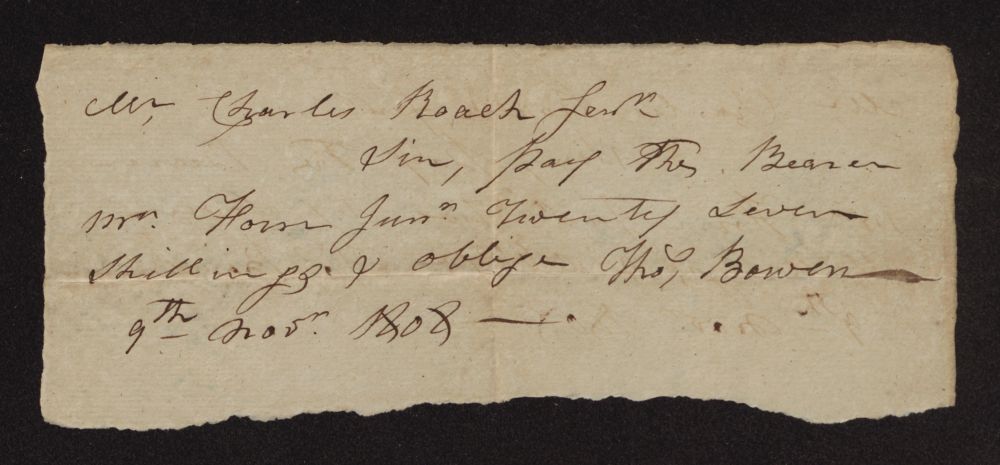 Mr, Charles Roach Senr
Sir, pay The Bearer
mr Horn Junr Twenty Seven
Shillings & oblige Thos, Bowen
9th novr 1808